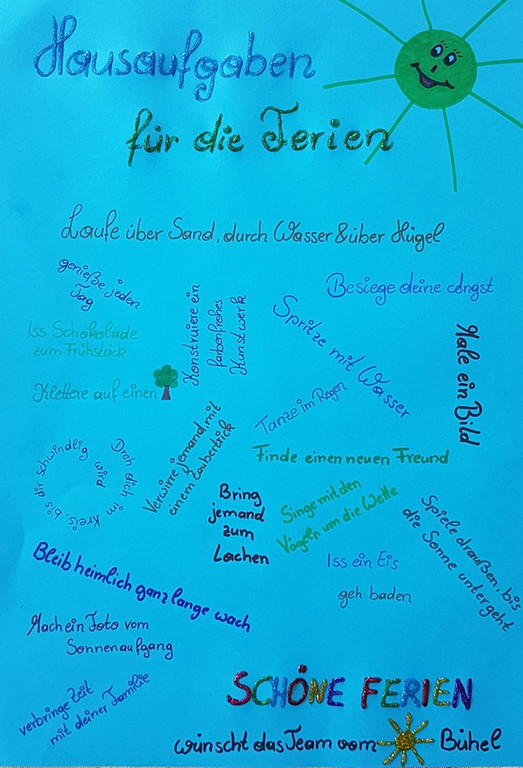 Hausaufgaben
für die Ferien
Laufe über Sand, durch Wasser & über Hügel
genieße jeden
Tag
Besiege deine Angst
Iss Schokolade
zum Frühstück
Konstruiere ein
farbenfrohes
Kunstwerk
Spritze mit Wasser
Male ein Bild
Klettere auf einen
Tanze im Regen
Verwirre jemand mit
einem Zaubertrick
Finde einen neuen Freund
Dreh dich im Kreis bis dir schwindlig wird
Bring
jemand
zum
Lachen
Singe mit den
Vögeln um die Wette
Spiele draußen, bis
die Sonne untergeht
Bleib heimlich ganz lange wach
Iss ein Eis
geh baden
Mach ein Foto vom
Sonnenaufgang
verbringe Zeit
mit deiner Familie
SCHÖNE FERIEN
wünscht das Team vom Bühel